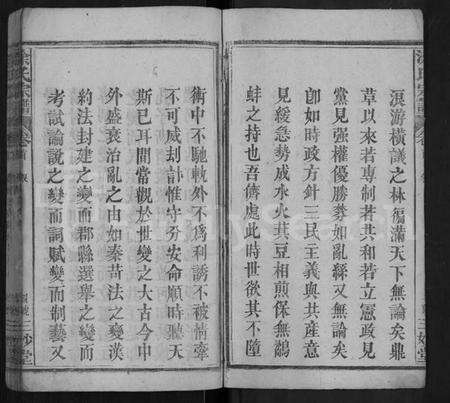 淇游橫議之林徧滿天下無論矣鼎
革以來若專制若共和若立憲政見
黨見強權優勝爭如亂絲又無論矣
卽如時政方針三民主義與共產意
見緩急勢成水火萁豆相煎保無鷸
蚌之持也吾儕處此時世欲其不墮
術中不馳軼外不爲利誘不被情牽
不可威刦計惟守分安命順時聽天
斯已耳間嘗觀於世變之大古今中
外盛衰治亂之由如秦苛法之變漢
約法封建之變而郡縣選舉之變而
考試論說之變而詞賦變而制藝又